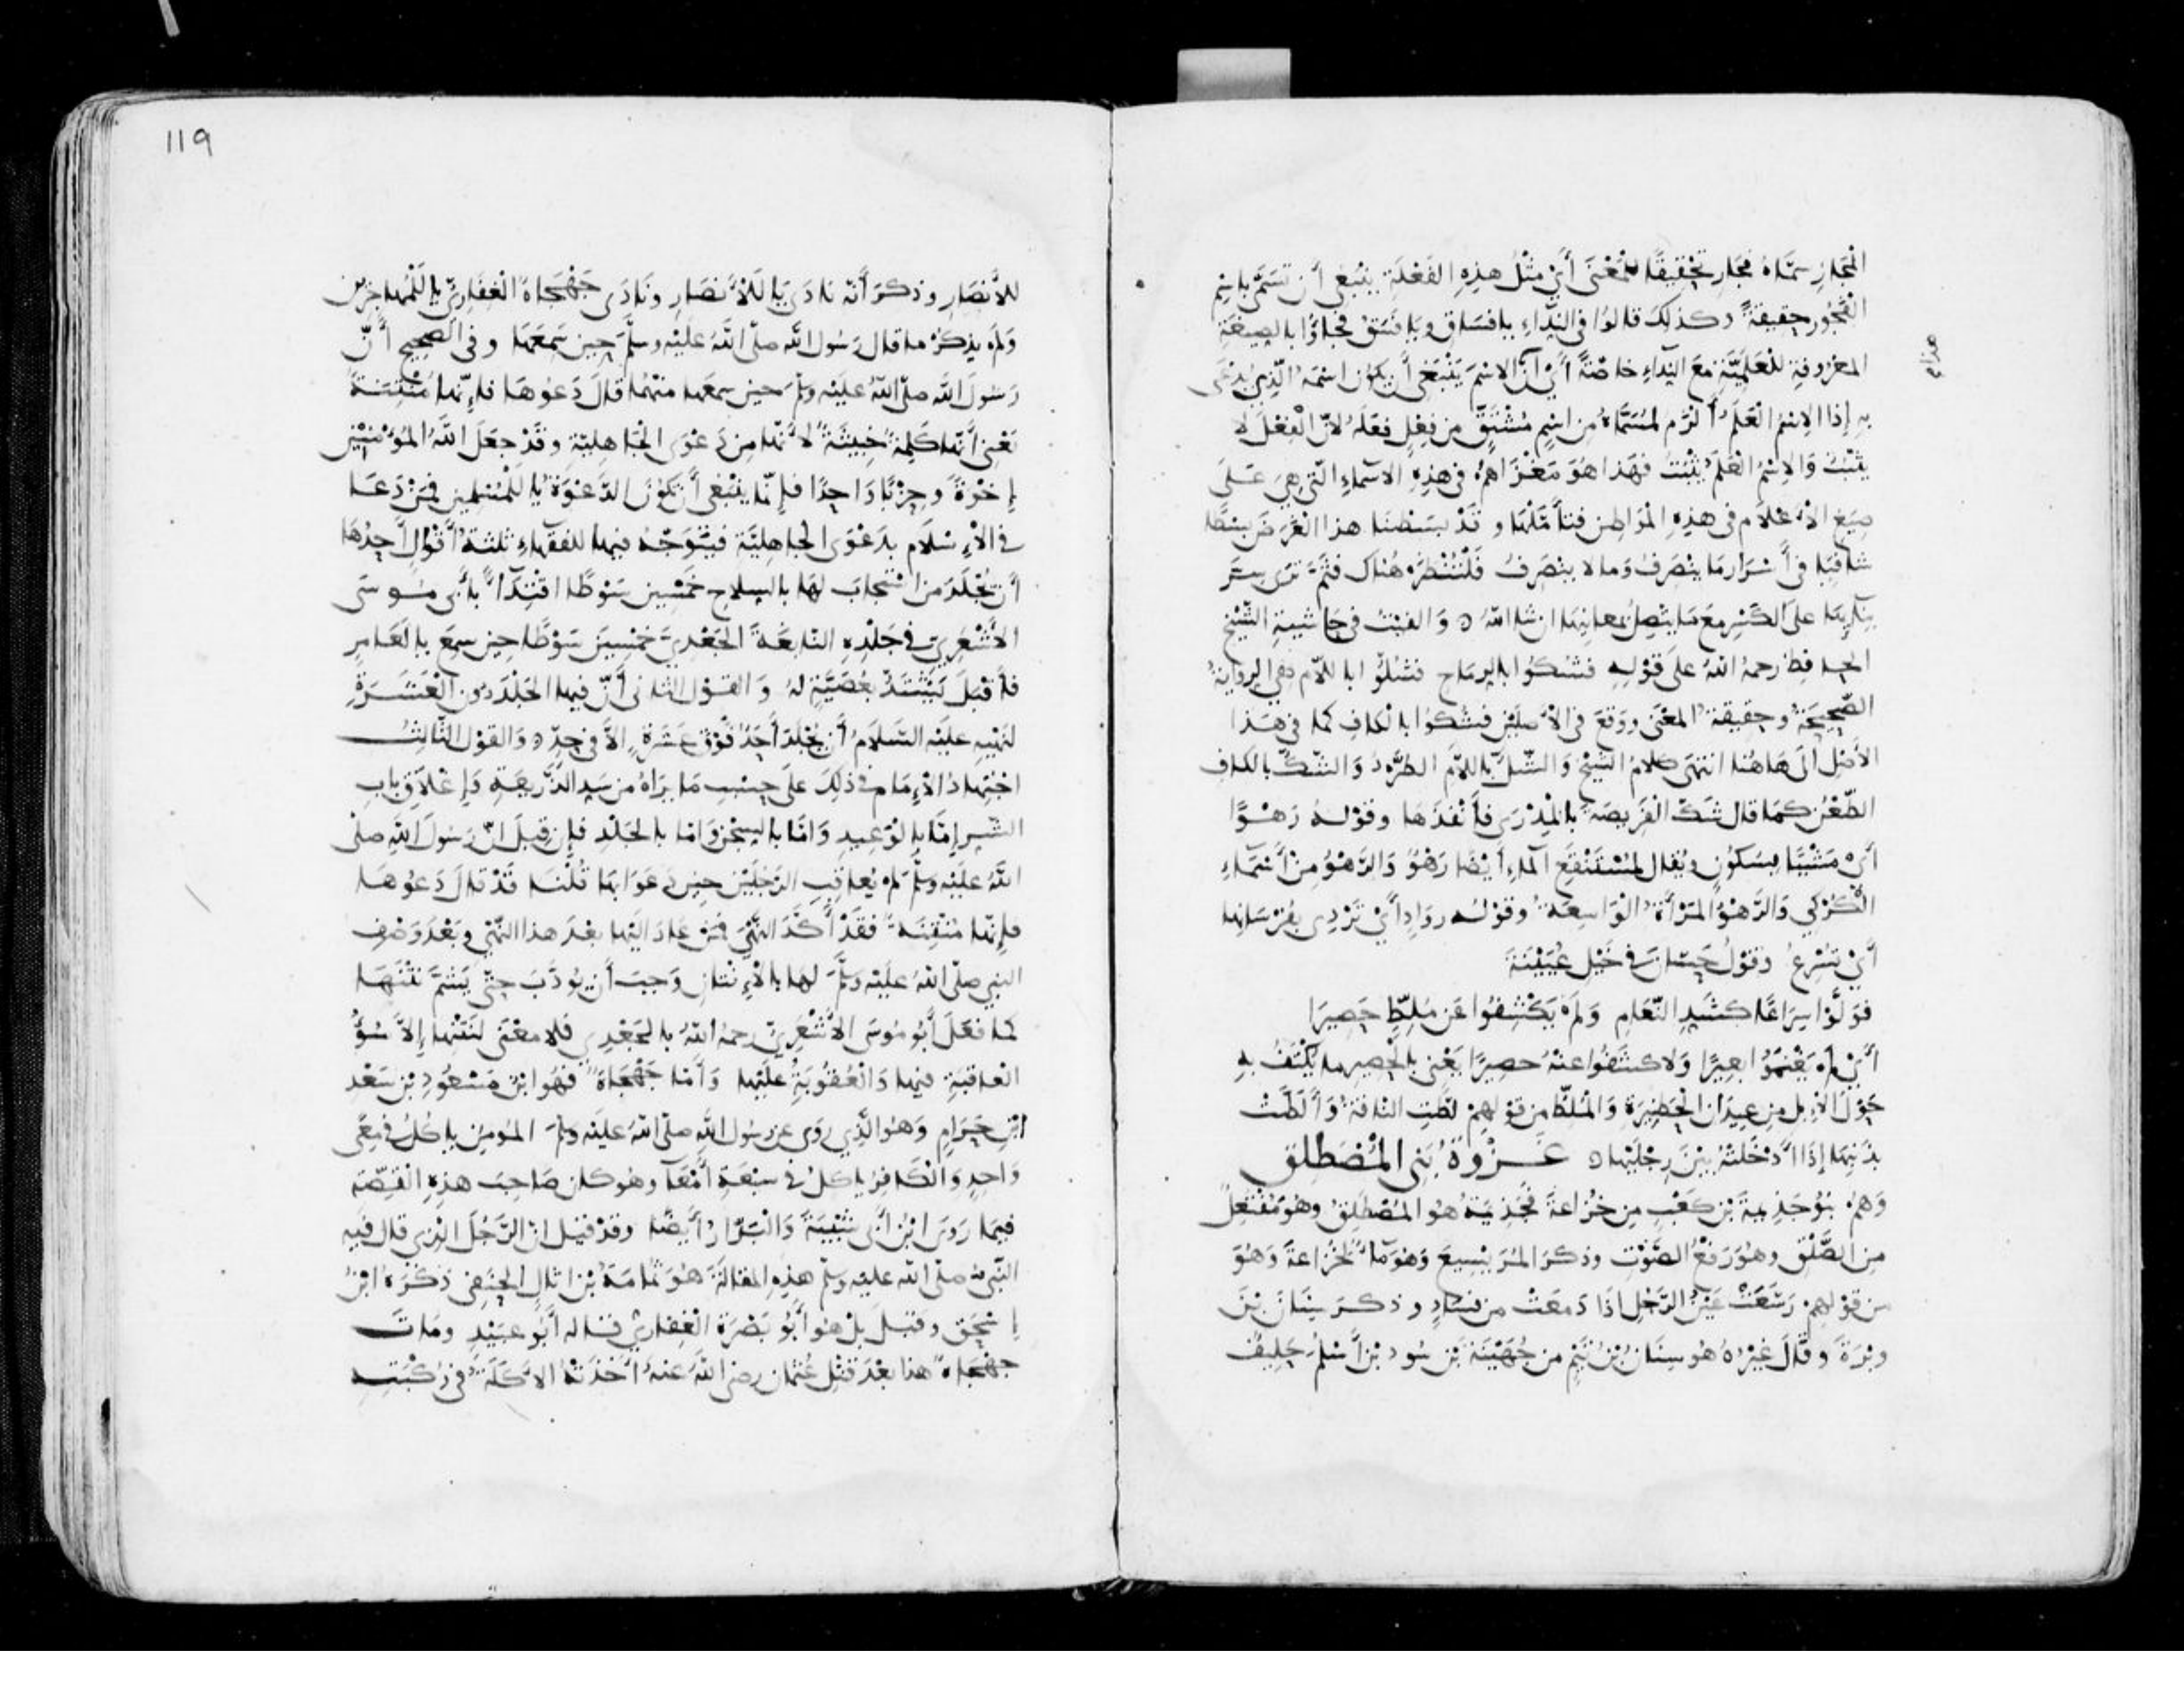 الْفِجَارِ سمَّاهُ فَجَارِ تحْقِيقًا للْمَعْنَى أَيْ مثْلُ هذِهِ الفَعْلَةِ ينْبَغى أَن تسَمَّى باسْمِ
الْفُجُورِ حقيقةً وكذلكَ قالوُا فى النِّدَاءِ يا فسَاقِ ويا فُسَقُ فجاؤُا بالصيغَةِ
المعْرُوفةِ للْعَلَمِيَّةِ معَ النِّدَاءِ خاصَّةً أَيْ أنَّ الاسْمَ يَنْبَغى أَن يكوُنَ اسْمَهُ الَّذِى يُدْعَى
هذا
بِهِ إذا الاِسْمُ الْعَلَمُ أَلزَمُ لمُسَمَّاهُ من اسْمٍ مُشْتَقٍّ مِن فِعْلٍ فعَلَهُ لأَنَّ الْفِعْلَ لا
يثْبُتُ وَالاِسْمُ العَلَمُ يثْبُتُ فهَذا هُوَ مَغْزَاهمْ فى هذِهِ الاسْماءِ الّتى هِىَ عَلَى
صِيَغِ الأَعْلَامِ فى هذِهِ الْمَوَاطِنِ فتأمَّلْهَا وقَدْ بسَطْنَا هذا الْغَرَضَ بسْطًا
شافِيًا فى أَسْرَارِ مَا ينْصَرِفُ وَمَا لا ينْصَرِفُ فلْتُنْظَرْ هُنَاك فثَمَّ ترَى سِرَّ
بنَآيهَا علَى الكَسْرِ مَعَ مَا يتّصِلُ بمعانِيهَا ان شا اللهُ ۞ وَالفَيْتُ فى حَاشيةِ الشّيْخِ
الحافظ رحمهُ اللهُ علَى قوْلهِ فشَكُوا بالرماحِ فشَلُّوا باللّام هى الرِّوَايَةُ
الصّحِيحَةُ وحقيقةُ المعْنَى ووَقعَ فى الأَصْلَيْنِ فشكُّوا بالكافِ كما فى هَذا
الأصْلِ الَى هَاهُنا انتهَى كلامُ الشّيْخِ وَالشّلُّ باللَّامِ الطَّرْدُ وَالشّكُّ بالكاف
الطّعْنُ كمَا قال شَكَّ الْفَرِيصَةَ بالْمِدْرَى فأَنْفَذَهَا وقوْلهُ رَهْوًا
أَىْ مَشْيًا بسُكوُنٍ ويُقال لمُسْتَنْقَعِ الْمَاءِ أَيْضًا رَهْوٌ وَالرَّهْوُ مِنْ أَسْمَاءِ
الْكُرْكِي وَالرَّهْوُ الْمَرْأَةُ الْوَاسِعَةُ وقوْلُه رَوَادٍ أَيْ تَرْدِى بفُرْسَانِها
أَىْ تُسْرِعُ وقوْلُ حَسّان فى خَيْلِ عُيَيْنَةَ
فوَلَّوْا سِرَاعًا كشَدِ النّعَامِ وَلَمْ يَكْشِفُوا عَن مُلِطٍّ حَصِيرَا
أَىْ لَمْ يَغْنَمُوُا بعِيرًا وَلا كشَفُوا عنْهُ حصِيرًا يَعْنى بالْحَصِيرِ ما يُكْتَفُ بهِ
حَوْلَ الإِبل مِن عِيدَانِ الْحَظِيرَةِ وَالمُلِطُّ من قوْلهِمْ لطّتِ النّاقةُ وَأَلَطّتْ
بذَنَبِهَا إذَا أَدْخَلتْهُ بيْنَ رِجْلَيْهَا ۞ غَزْوَةُ بَنِى المُصْطَلِق
وَهُمْ بنُو جَذِيمةَ بْن كعْبٍ مِن خُزَاعةَ فجَذِيمَةُ هُو المُصْطَلِقُ وهُو مُفْتَعِلٌ
مِن الصَّلْقِ وهُوَ رَفعُ الصَّوْتِ وذكَرَ المُرَيْسِيعَ وَهْوَ مَآءٌ لخُزَاعةَ وَهُوَ
من قوْلهِمْ رَسَعَتْ عَيْنُ الرَّجُلِ اذَا دَمعَتْ مِن فسَادٍ وذكرَ سِنَانَ بنَ
وبْرَةَ وقالَ غيْرُهُ هُو سِنَانُ بْنُ تَيْمٍ من جُهَيْنَةَ بْنِ سُودِ بْنِ أَسْلُمِ حَلِيفُ
١١٩
للأَنصَارِ وذكرَ أَنّه نادَى يَا لَلأَنصَارِ ونَادَى جَهْجَاهٌ الْغِفَارِىّ يا لَلْمُهاجِرِين
وَلَم يذكُرْ ما قال رَسُول الله صلّى اللهُ عَليْه وسلّمَ حِين سَمِعَهَا وفى الصحِيحِ أَنّ
رَسُولَ اللهِ صلّى اللهُ علَيْه وسلّمَ حين سمعَها منهُما قالَ دَعُوهَا فإِنّهَا مُنْتِنَةٌ
يَعْنِى أَنّها كَلِمَةٌ خبِيثَةٌ لأَنّها مِن دَعْوَى الْجَاهِليّةِ وقَدْ جعَلَ اللهُ المُؤْمِنينَ
إِخْوَةً وحِزْبًا وَاحِدًا فإِنّما ينْبَغى أَن تكوُنَ الدَّعْوَةُ يا لَلْمُسْلمِين فَمَنْ دَعَا
فى الْإِسْلَامِ بدَعْوَى الجاهِلِيَّةِ فيَتَوَجَّهُ فيها للفقَهاءِ ثلثةُ أَقْوَالٍ أَحَدُهَا
أَن يُجْلَدَ مَنِ اسْتجَابَ لهَا بالسِلاحِ خَمْسِين سَوْطًا اقْتِدَآءً بأَبى مُوسَى
الأَشْعَرِىّ فى جَلْدِهِ النّابغَةَ الجَعْدِيَّ خمْسِينَ سَوْطًا حِين سمِعَ يا لَعَامِرٍ
فأَقبَلَ يَشْتَدُّ بعُصَيَّةٍ لهُ وَالقوْلُ الثانى أَنّ فيها الجَلْدَ دُون الْعَشَرَةِ
لنَهْيِهِ علَيْهِ السَّلَامُ أَن يُجْلدَ أَحَدٌ فَوْقَ عَشَرَةٍ إِلاَّ فى حَدٍّ ۞ وَالقوْلُ الثّالِثُ
اجْتِهادُ الْإِمَامِ فى ذلكَ علَى حسْبِ مَا يرَاهُ مِن سَدِ الذَّرِيعَةِ وَإِغْلَاقِ بابِ
الشّرِ إِمّا بالْوَعِيدِ وَامّا بالسِجْنِ وَامّا بالجَلْدِ فإِن قيلَ انّ رَسُولَ اللهِ صلّى
اللهُ علَيْهِ وسلّمَ لمْ يُعاقِبِ الرَّجُلَيْن حِين دَعَوَا بهَا قُلْنَا قَدْ قالَ دَعُوهَا
فإِنّها مُنْتِنَةٌ فقَدْ أَكّدَ النّهْىَ فَمَنْ عَادَ الَيْهَا بعْدَ هذا النّهْىِ وبَعْدَ وَصْفِ
النبى صلّى اللهُ علَيْه وسلّمَ لها بالْإِنْتَانِ وَجبَ أَن يؤدَّبَ حتّى يَشَمَّ نَتْنَهَا
كما فعَلَ أَبُو مُوسَى الأَشْعَرِىّ رحمهُ اللهُ بالجَعْدِى فلا معْنَى لنَتْنِها إِلاَّ سُوْءُ
الْعاقبَةِ فيها وَالْعُقُوبَةُ علَيْها وَأَمّا جَهْجَاهٌ فهُوَ ابْنُ مَسْعُودِ بْنِ سَعْدِ
ابْنِ حَرَامٍ وَهُوَ الَّذِى رَوَى عن رسُول اللهِ صلّى اللهُ علَيْه وسلّمَ المُومِنُ ياكُلُ فى مِعًى
وَاحِدٍ وَالْكَافِرُ ياكلُ فى سبْعَةِ أَمْعَآءٍ وهُو كان صَاحِبَ هذِهِ القِصّةِ
فيمَا رَوَى ابْنُ أَبى شَيْبَةَ وَالْبَزَّارُ أَيْضًا وقدْ قيل انّ الرَّجُلَ الّذِى قال فيهِ
النّبيُّ صلّى الله عليه وسلّم هذِهِ المقالَةَ هُوَ ثُمامَةُ بْنُ اثالٍ الحَنَفِى ذكَرَهُ ابْنُ
إِسْحَقَ وقيلَ بلْ هُو أَبُو بَصْرَةَ الْغِفارِىّ قالهُ أَبُو عُبَيْدٍ ومَاتَ
جَهْجَاه هذا بعْدَ قتْلِ عُثمان رضى اللهُ عنهُ أَخَذَتْهُ الأكلَةُ فى رُكْبَتِهِ